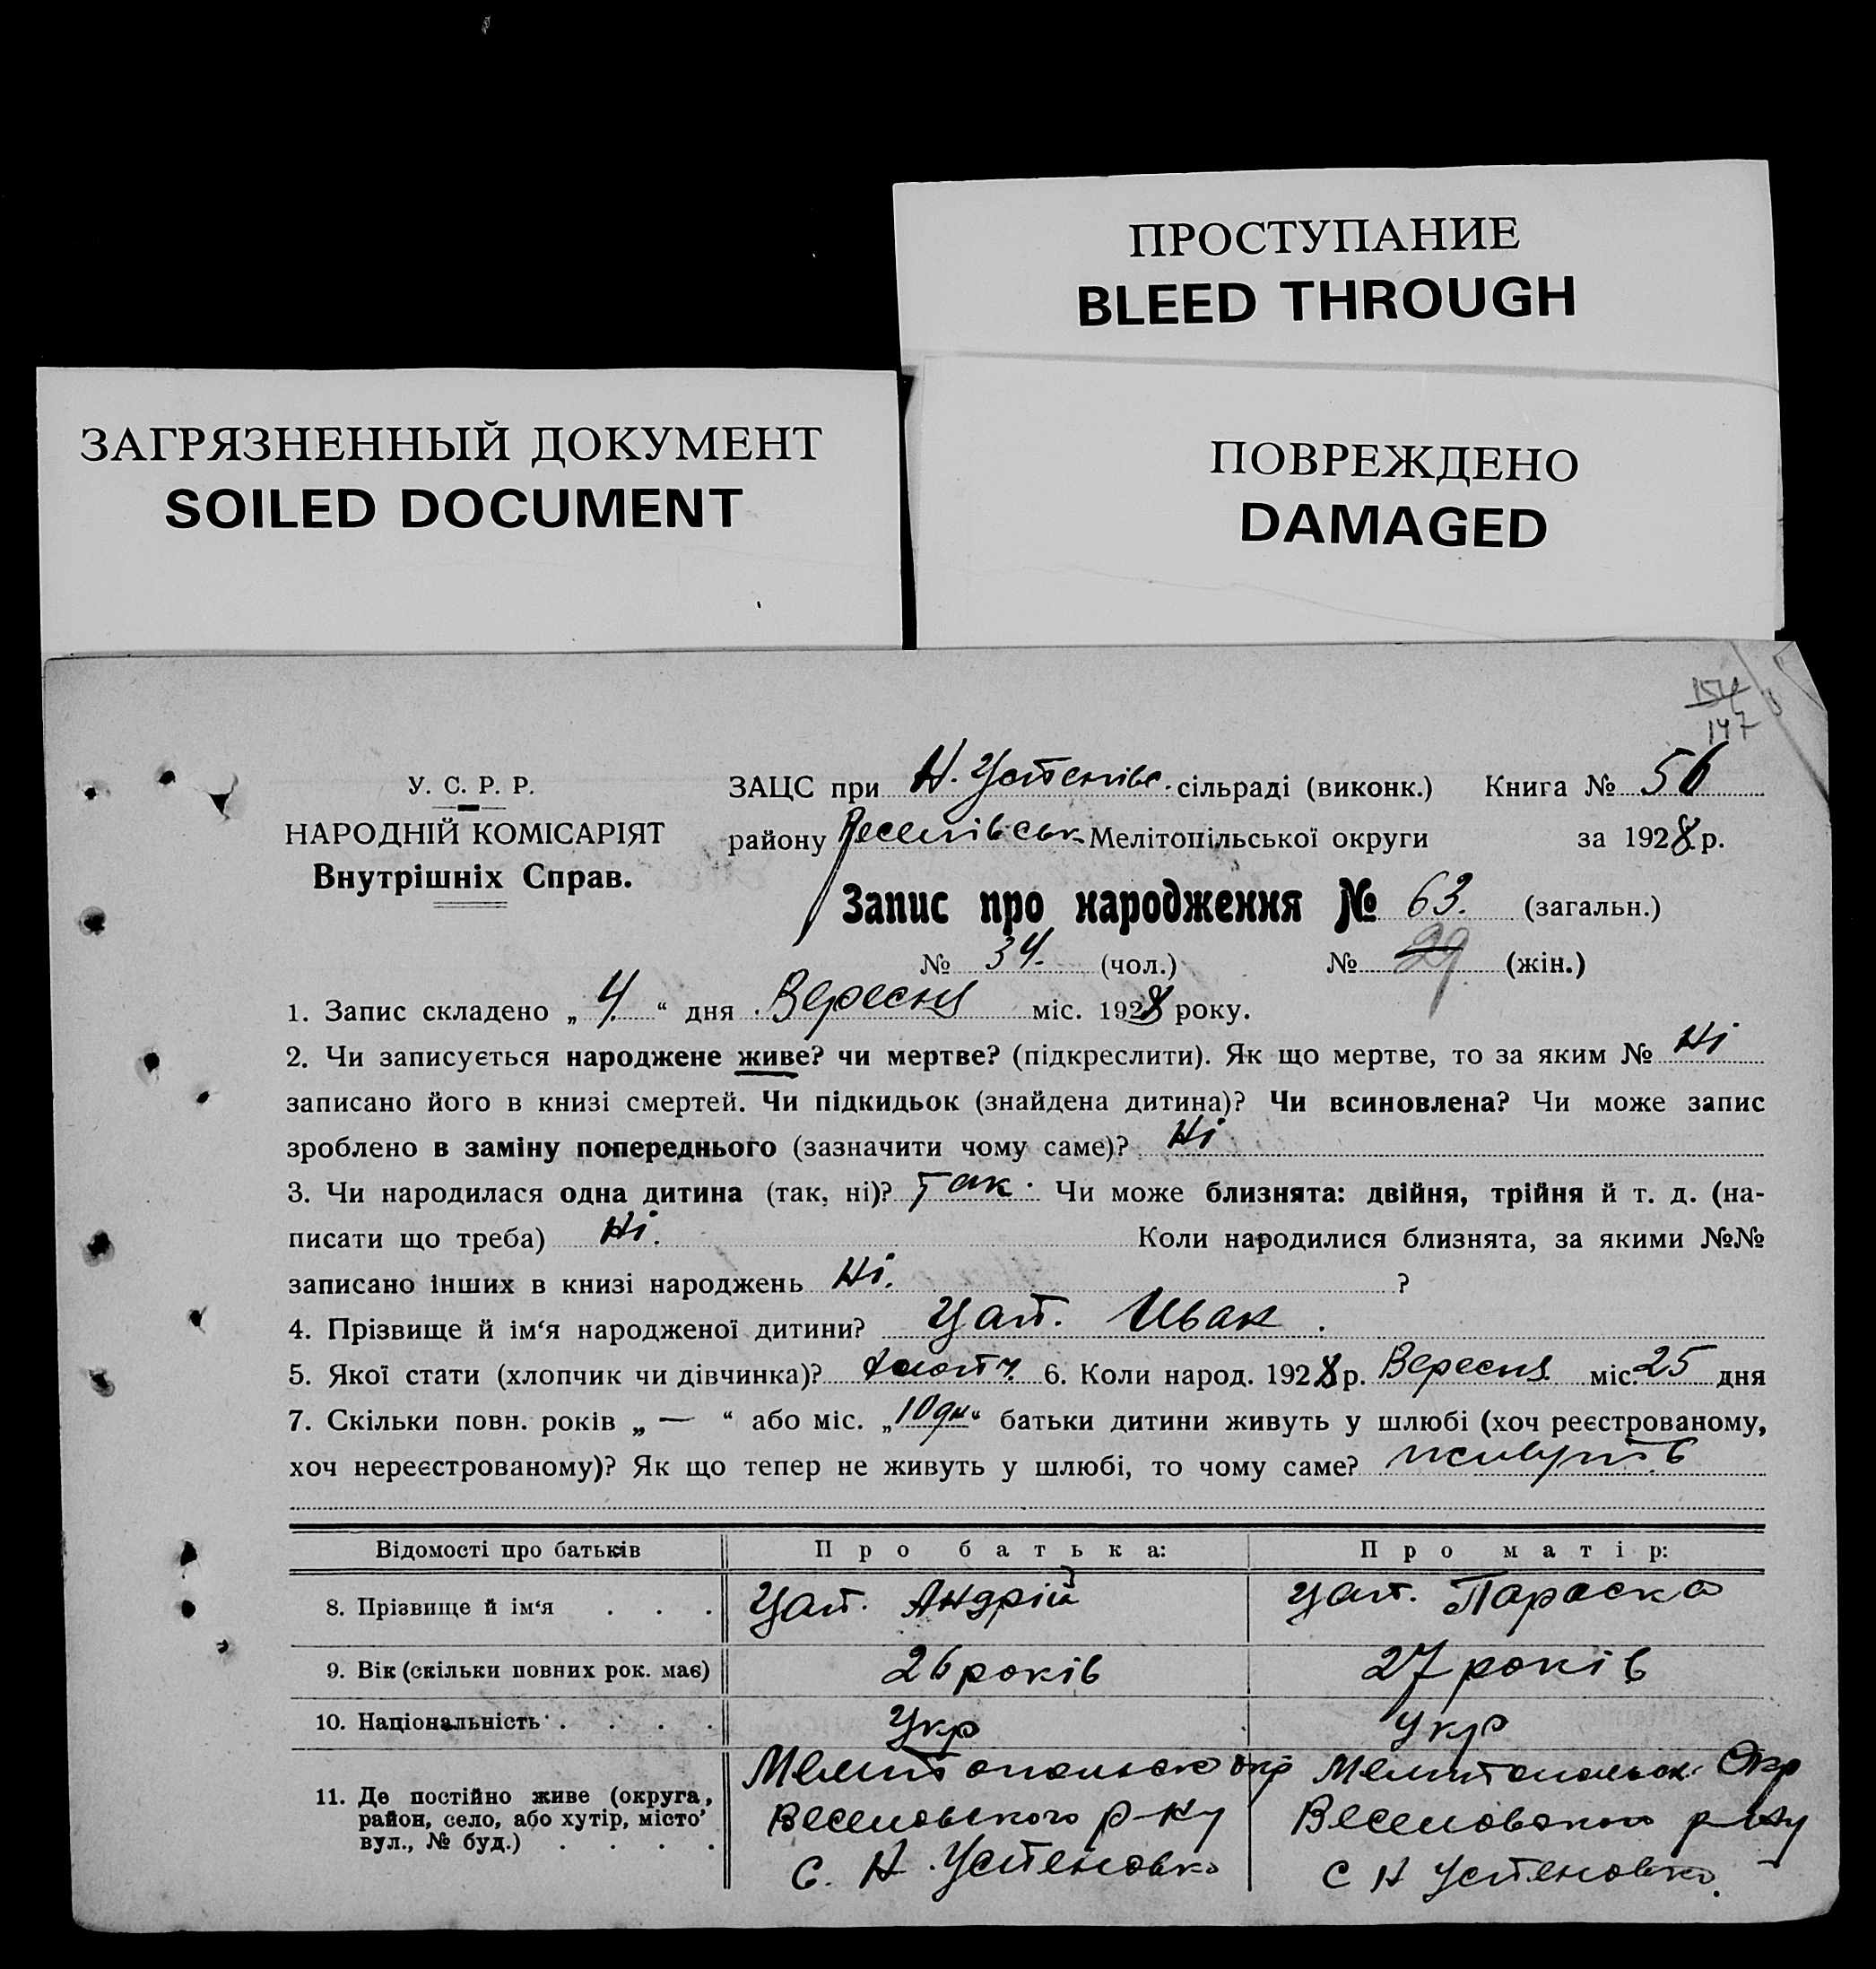 ПРОСТУПАНИЕ
BLEED THROUGH
ЗАГРЯЗНЕННЫЙ ДОКУМЕНТ
SOILED DOCUMENT
ПОВРЕЖДЕНО
DAMAGED
154
147
У. С. Р. Р.
НАРОДНІЙ КОМІСАРІЯТ
Внутрішніх Справ.
ЗАЦС при Н. Устенівс. сільраді (виконк.) Книга № 56
району Веселівськ Мелітопільської округи за 1928 р.
Запис про народження № 63. (загальн.)
№ 34. (чол.) № 29 (жін.)
1. Запис складено „ 4. “ дня Вересня міс. 1928 року.
2. Чи записується народжене живе? чи мертве? (підкреслити). Як що мертве, то за яким № Ні
записано його в книзі смертей. Чи підкидьок (знайдена дитина)? Чи всиновлена? Чи може запис
зроблено в заміну попереднього (зазначити чому саме)? Ні
3. Чи народилася одна дитина (так, ні)? Так. Чи може близнята: двійня, трійня й т. д. (на-
писати що треба) Ні. Коли народилися близнята, за якими №№
записано інших в книзі народжень Ні. ?
4. Прізвище й ім‘я народженої дитини? Цап. Ивак.
5. Якої стати (хлопчик чи дівчинка)? 6. Коли народ. 1928 р. Вересня міс. 25 дня
7. Скільки повн. років „ — “ або міс. „ 10 дн “ батьки дитини живуть у шлюбі (хоч реєстрованому,
хоч нереєстрованому)? Як що тепер не живуть у шлюбі, то чому саме? живуть
Відомості про батьків Про батька: Про матір:
8. Прізвище й ім‘я . . . Цап. Андрій Цап. Параска
9. Вік (скільки повних рок. має) 26 років 27 років
10. Національність . . . . Укр Укр
11. Де постійно живе (округа, Мелитопольско окр Мелитопольск. Окр
район, село, або хутір, місто Веселовского р-ку Веселовского р-ку
вул., № буд.) . . . . С. Н. Устеновко С Н Устеновко.